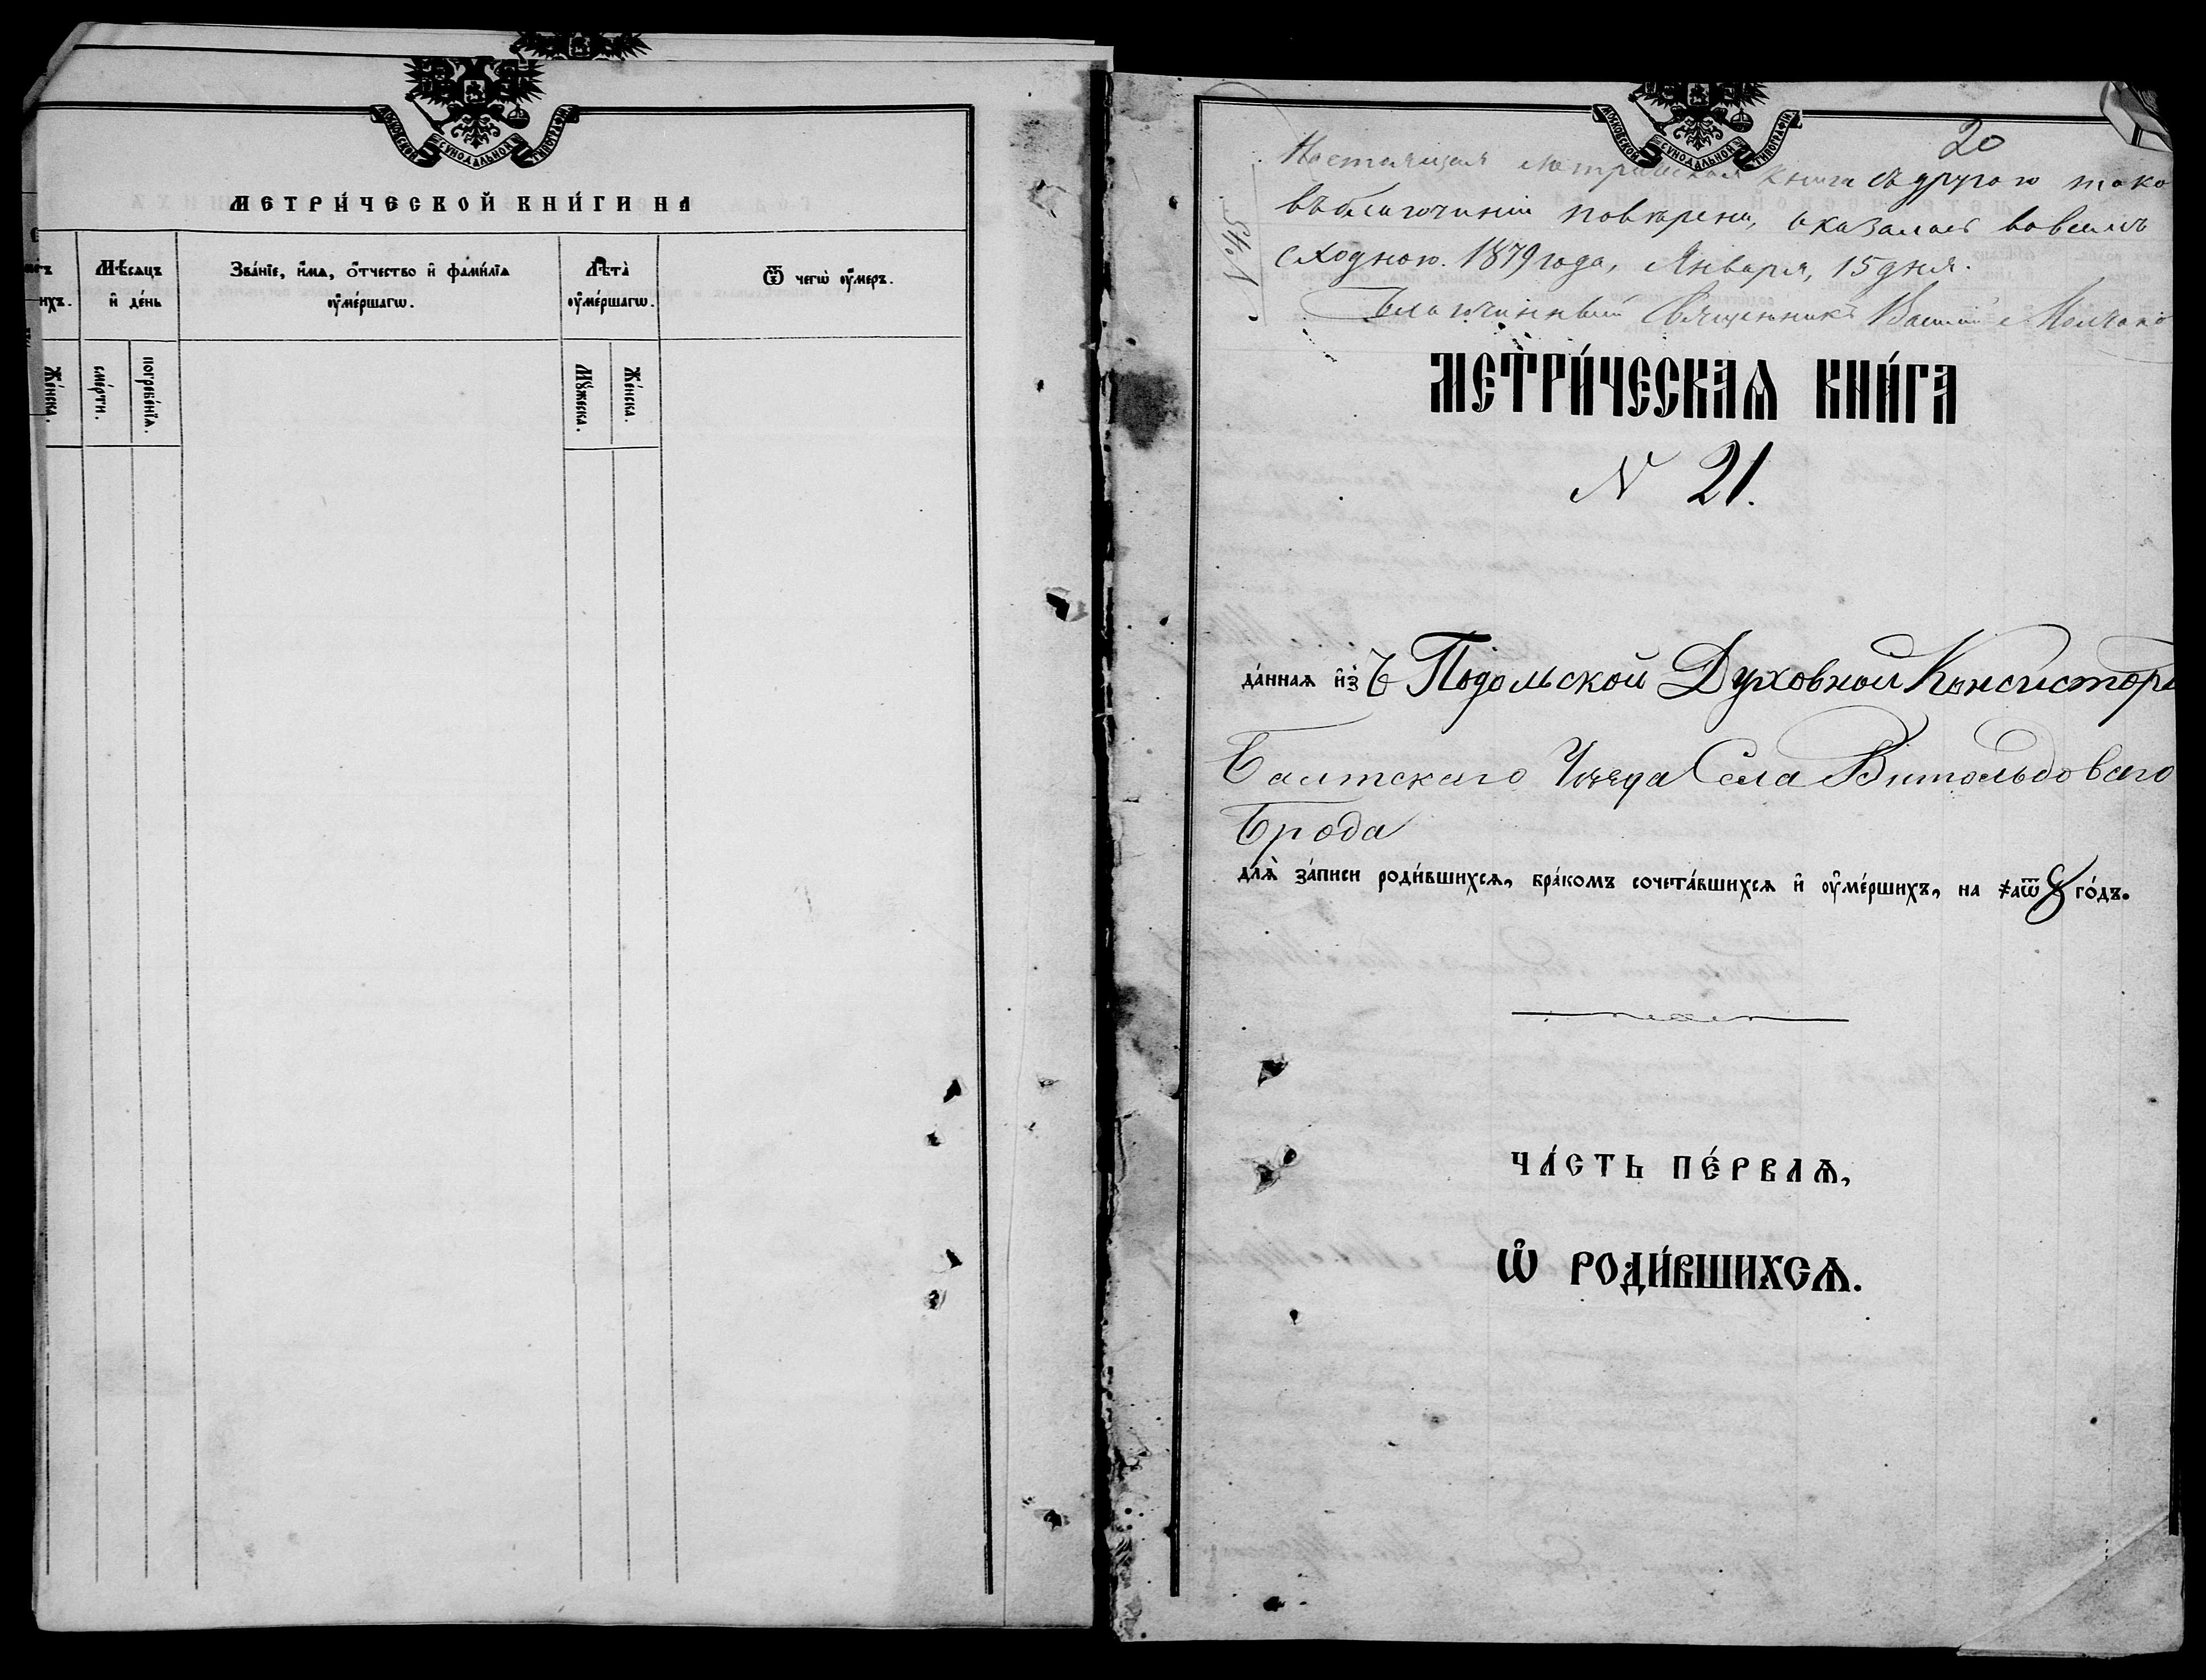 МОСКОВСКОЙ СѴНОДАЛЬНОЙ ТИПОГРАФІИ
МЕТРИ́ЧЕСКОЙ КНИ́ГИ НА
ихъ.
Мѣ́сяцъ и҆ де́нь
Зва́нїе, и҆́мѧ, ѻ҆́тчество и҆ фами́лїѧ ᲂу҆ме́ршагѡ.
Лѣ́та ᲂу҆ме́ршагѡ.
Ѿ чегѡ̀ ᲂу҆́меръ.
Же́нска.
сме́рти.
погребе́нїѧ.
Мꙋ́жеска.
Же́нска.
МОСКОВСКОЙ СѴНОДАЛЬНОЙ ТИПОГРАФІИ
20
Настоящая метрическая книга съ другою тако
въ благочиніи повѣрена, оказалась вовсемъ
сходною. 1879 года, Января, 15 дня.
Благочинный Священникъ
№ 45
МЕТРИ́ЧЕСКАѦ КНИ́ГА
N 21.
да́ннаѧ и҆з̾ Подольской Духовной Консисторі
Балтскаго Уѣзда Села Витольдоваго
Брода
длѧ̀ за́писи роди́вшихсѧ, бра́комъ сочета́вшихсѧ и҆ ᲂу҆ме́ршихъ, на ҂аѿ го́дъ.
ЧА́СТЬ ПЕ́РВАѦ,
Ѡ҆ РОДИ́ВШИХСѦ.